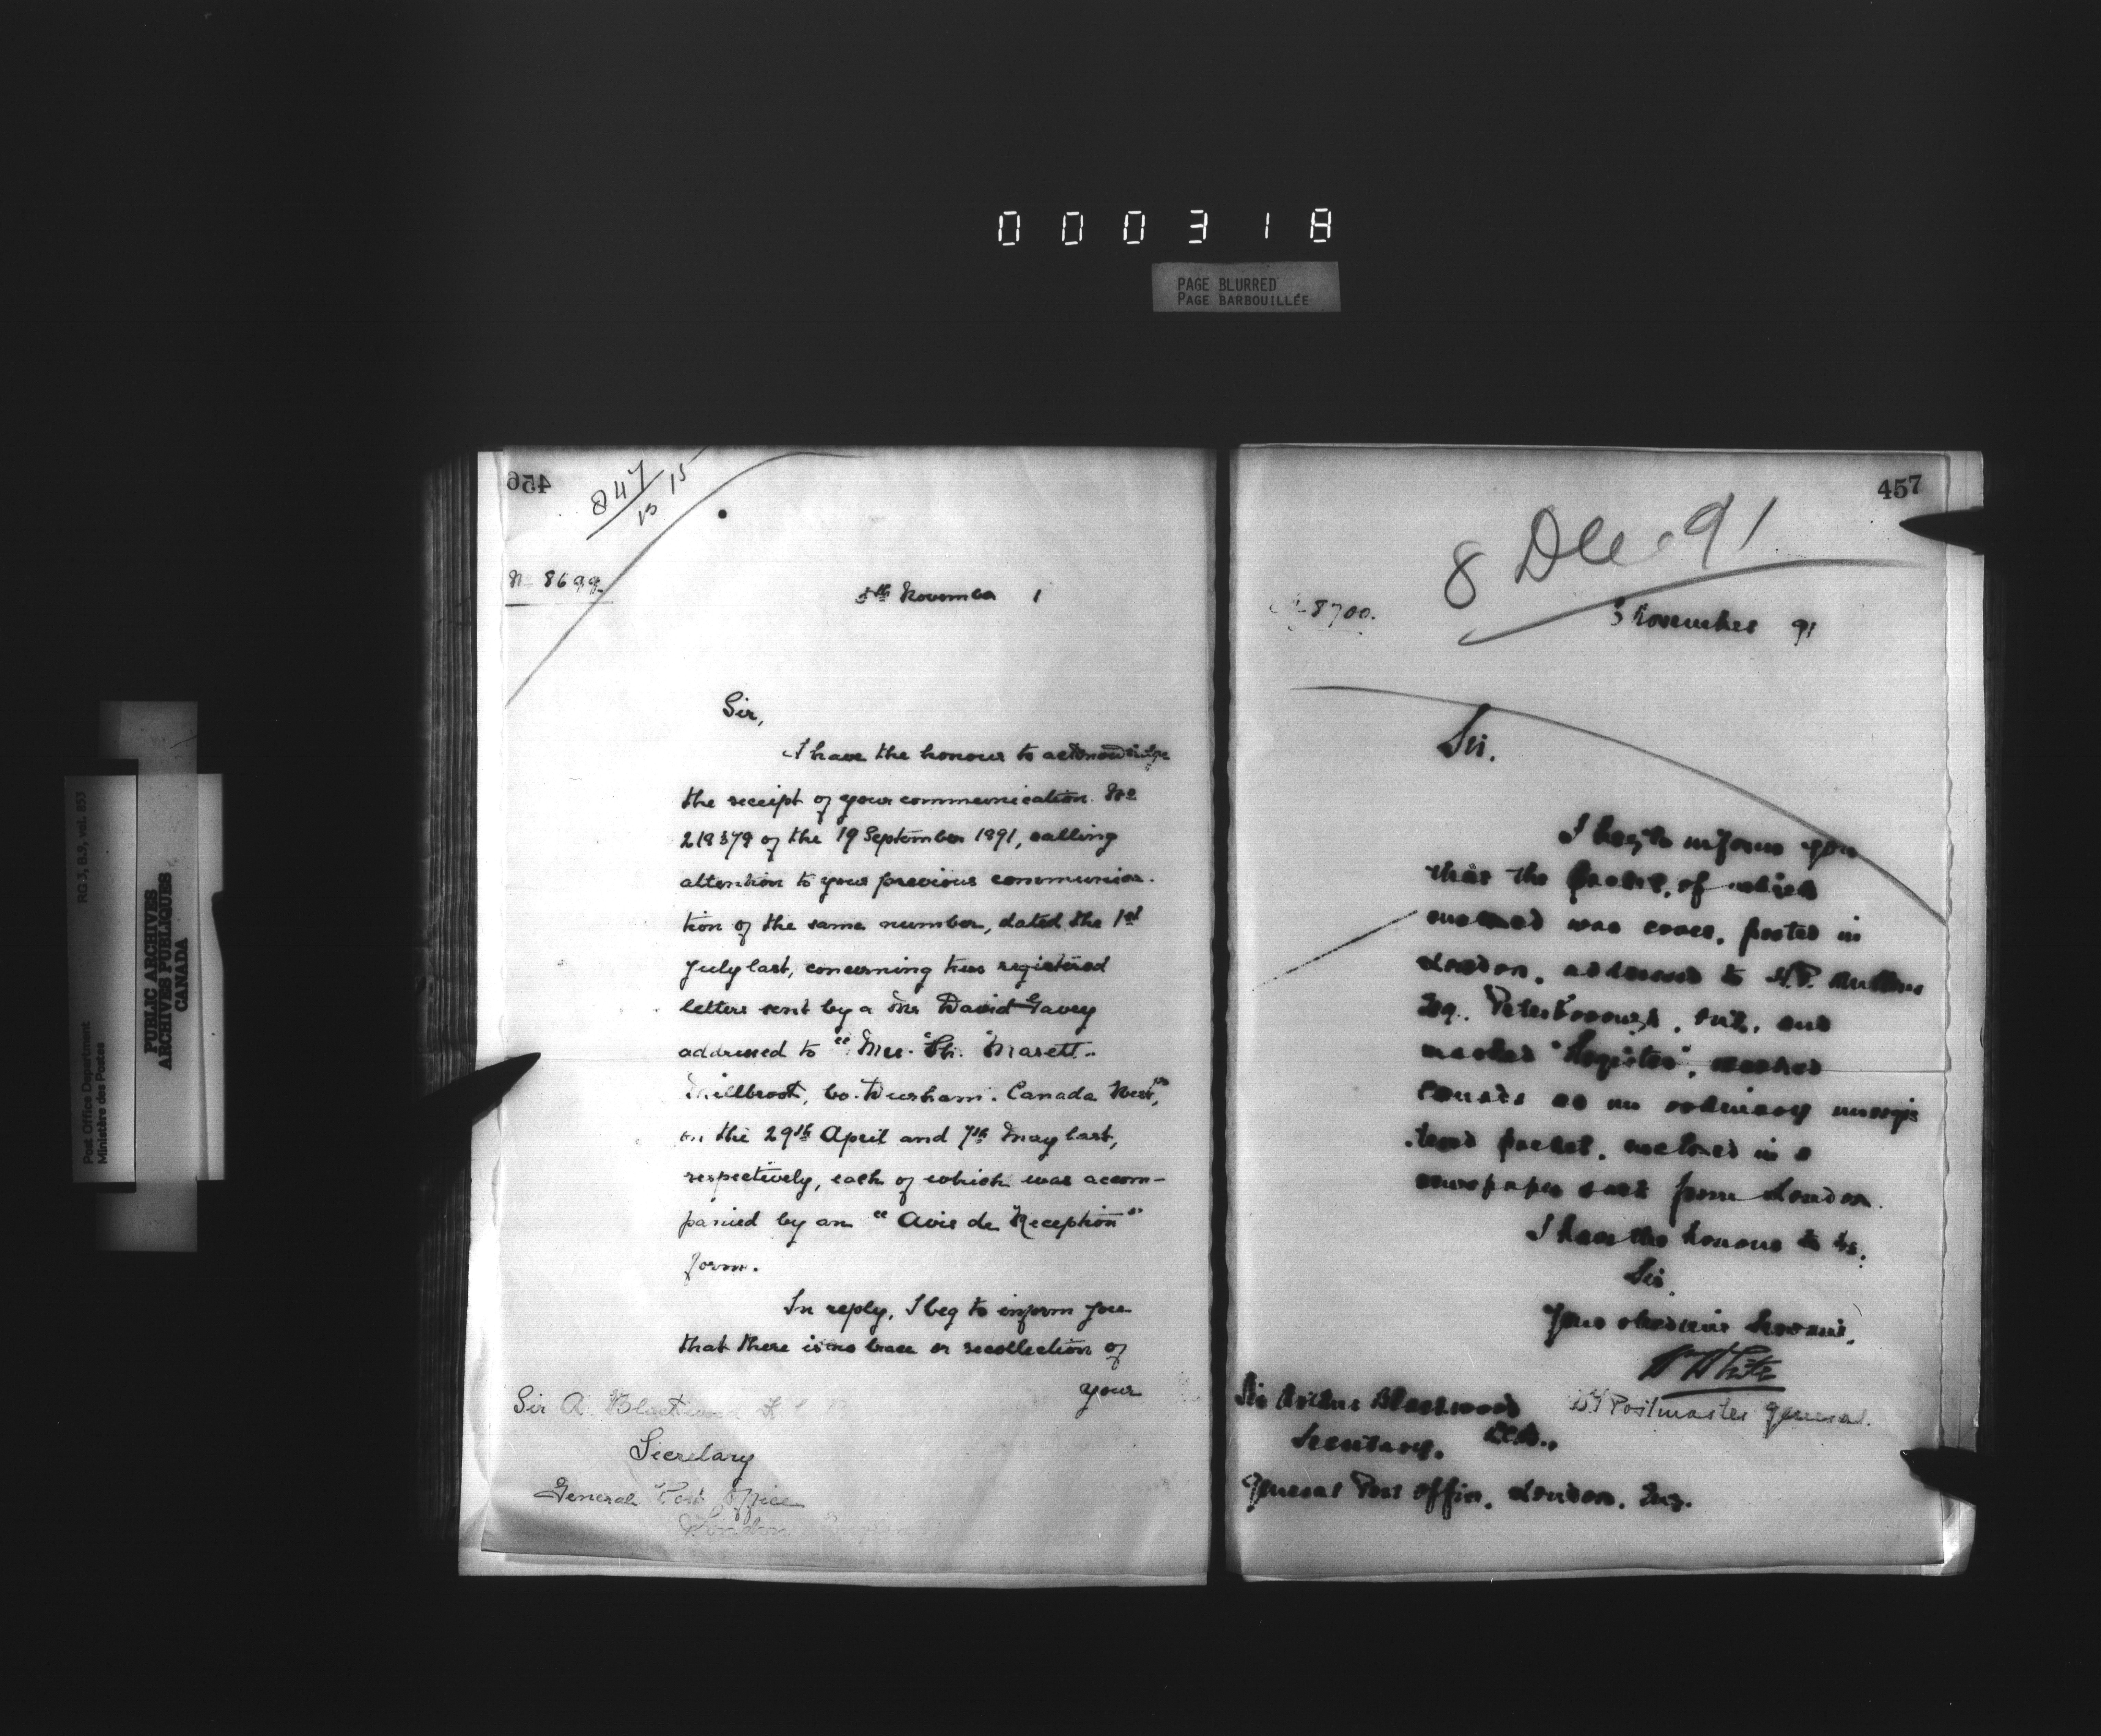 000318
PAGE BLURRED
PAGE BARBOUILLÉE
RG 3, B.9, vol. 853
PUBLIC ARCHIVES
ARCHIVES PUBLIQUES
CANADA
Post Office Department
Ministère des Postes
456
847
15 15
No 8699
5th November 1
Sir,
I have the honour to acknowledge
the receipt of your communication No
218378 of the 19 September 1891, calling
attention to your previous communica-
tion of the same number, dated the 1st
July last, concerning two registered
letters sent by a Mr David Gavey
addressed to "Mrs. Th. Marett
Millbrook, Co. Durham. Canada West",
on the 29th April and 7th May last,
respectively, each of which was accom-
panied by an "Avis de Reception"
form.
In reply, I beg to inform you
that there is no trace or recollection of
your
Sir A. Blackwood K C B
Secretary
General Post Office
London England
457
8 Dec 91
8700.
3 November 91
Sir.
I beg to inform you
that the packet, of which
enclosed was cover, posted in
London, addressed to H.P.
Esq. Peterborough, Ont, and
marked "Register", reached
Canada as an ordinary unregis
tered packet, enclosed in a
newspaper sack from London.
I have the honour to be,
Sir.
Your obedient Servant,
W White
Dy Postmaster General.
Sir Arthur Blackwood
K.C.B.,
Secretary.
General Post Office, London, Eng.